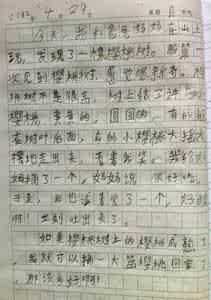 2012年4月29日 星期日
今天,我和爸爸妈妈在山上
玩,发现了一棵樱桃树。
没见到樱桃树,感觉很新奇。樱
桃树不是很高。树上结了许
樱桃,黄黄的,圆圆的,有的
在树叶后面,有的小樱桃大摇大
摆地走出来,看看
妈摘了一个,妈妈说,很好吃,
于是,我也试着尝了一个,好
啊!立刻吐出来了。
如果樱桃树上的樱桃成熟了
我就可以摘一大篮樱桃回家了
那该多好啊!